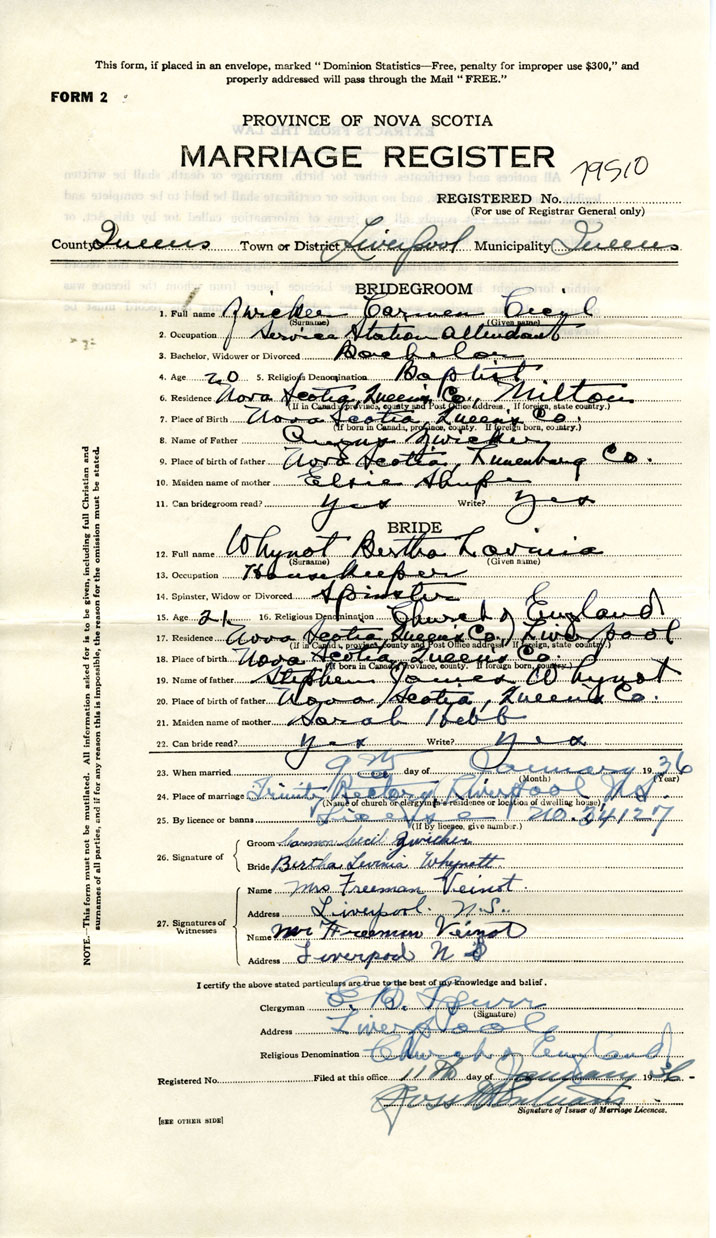 This form, if placed in an envelope, marked "Dominion Statistics—Free, penalty for improper use $300," and
properly addressed will pass through the Mail "FREE."
FORM 2
PROVINCE OF NOVA SCOTIA
MARRIAGE REGISTER
79510
REGISTERED No.
(For use of Registrar General only)
County Queens Town or District Liverpool Municipality Queens
BRIDEGROOM
1. Full name Zwicker Carmen Cecil
(Surname) (Given name)
2. Occupation Service Station Attendant
3. Bachelor, Widower or Divorced Bachelor
4. Age 20 5. Religious Denomination Baptist
6. Residence Nova Scotia, Queens Co., Milton
(If in Canada, province, county and Post Office address. If foreign, state country.)
7. Place of Birth Nova Scotia, Queens Co.
(If born in Canada, province, county. If foreign born, country.)
8. Name of Father Zwicker
9. Place of birth of father Nova Scotia, Lunenburg Co.
10. Maiden name of mother Elsie Shupe
11. Can bridegroom read? Yes Write? Yes
BRIDE
12. Full name Whynot Bertha Lavinia
(Surname) (Given name)
13. Occupation Housekeeper
14. Spinster, Widow or Divorced Spinster
15. Age 21 16. Religious Denomination Church of England
17. Residence Nova Scotia, Queens Co., Liverpool
(If in Canada, province, county and Post Office address. If foreign, state country.)
18. Place of birth Nova Scotia, Queens Co.
(If born in Canada, province, county. If foreign born, country.)
19. Name of father Stephen James Whynot
20. Place of birth of father Nova Scotia, Queens Co.
21. Maiden name of mother Sarah Hebb
22. Can bride read? Yes Write? Yes
23. When married 9th day of January 1936
(Month) (Year)
24. Place of marriage Trinity Rectory Liverpool N.S.
(Name of church or clergyman's residence or location of dwelling house)
25. By licence or banns License No. 34127
(If by licence, give number.)
26. Signature of
Groom Carmon Cecil Zwicker
Bride Bertha Levinia Whynott
27. Signatures of Witnesses
Name Mrs Freeman Veinot.
Address Liverpool. N.S.
Name Mr Freeman Veinot
Address Liverpool N S
I certify the above stated particulars are true to the best of my knowledge and belief.
Clergyman E. B. Spurr
(Signature)
Address Liverpool
Religious Denomination Church of England
Registered No. Filed at this office 11th day of January 1936.
Signature of Issuer of Marriage Licences.
[SEE OTHER SIDE]
NOTE.—This form must not be mutilated. All information asked for is to be given, including full Christian and
surnames of all parties, and if for any reason this is impossible, the reason for the omission must be stated.